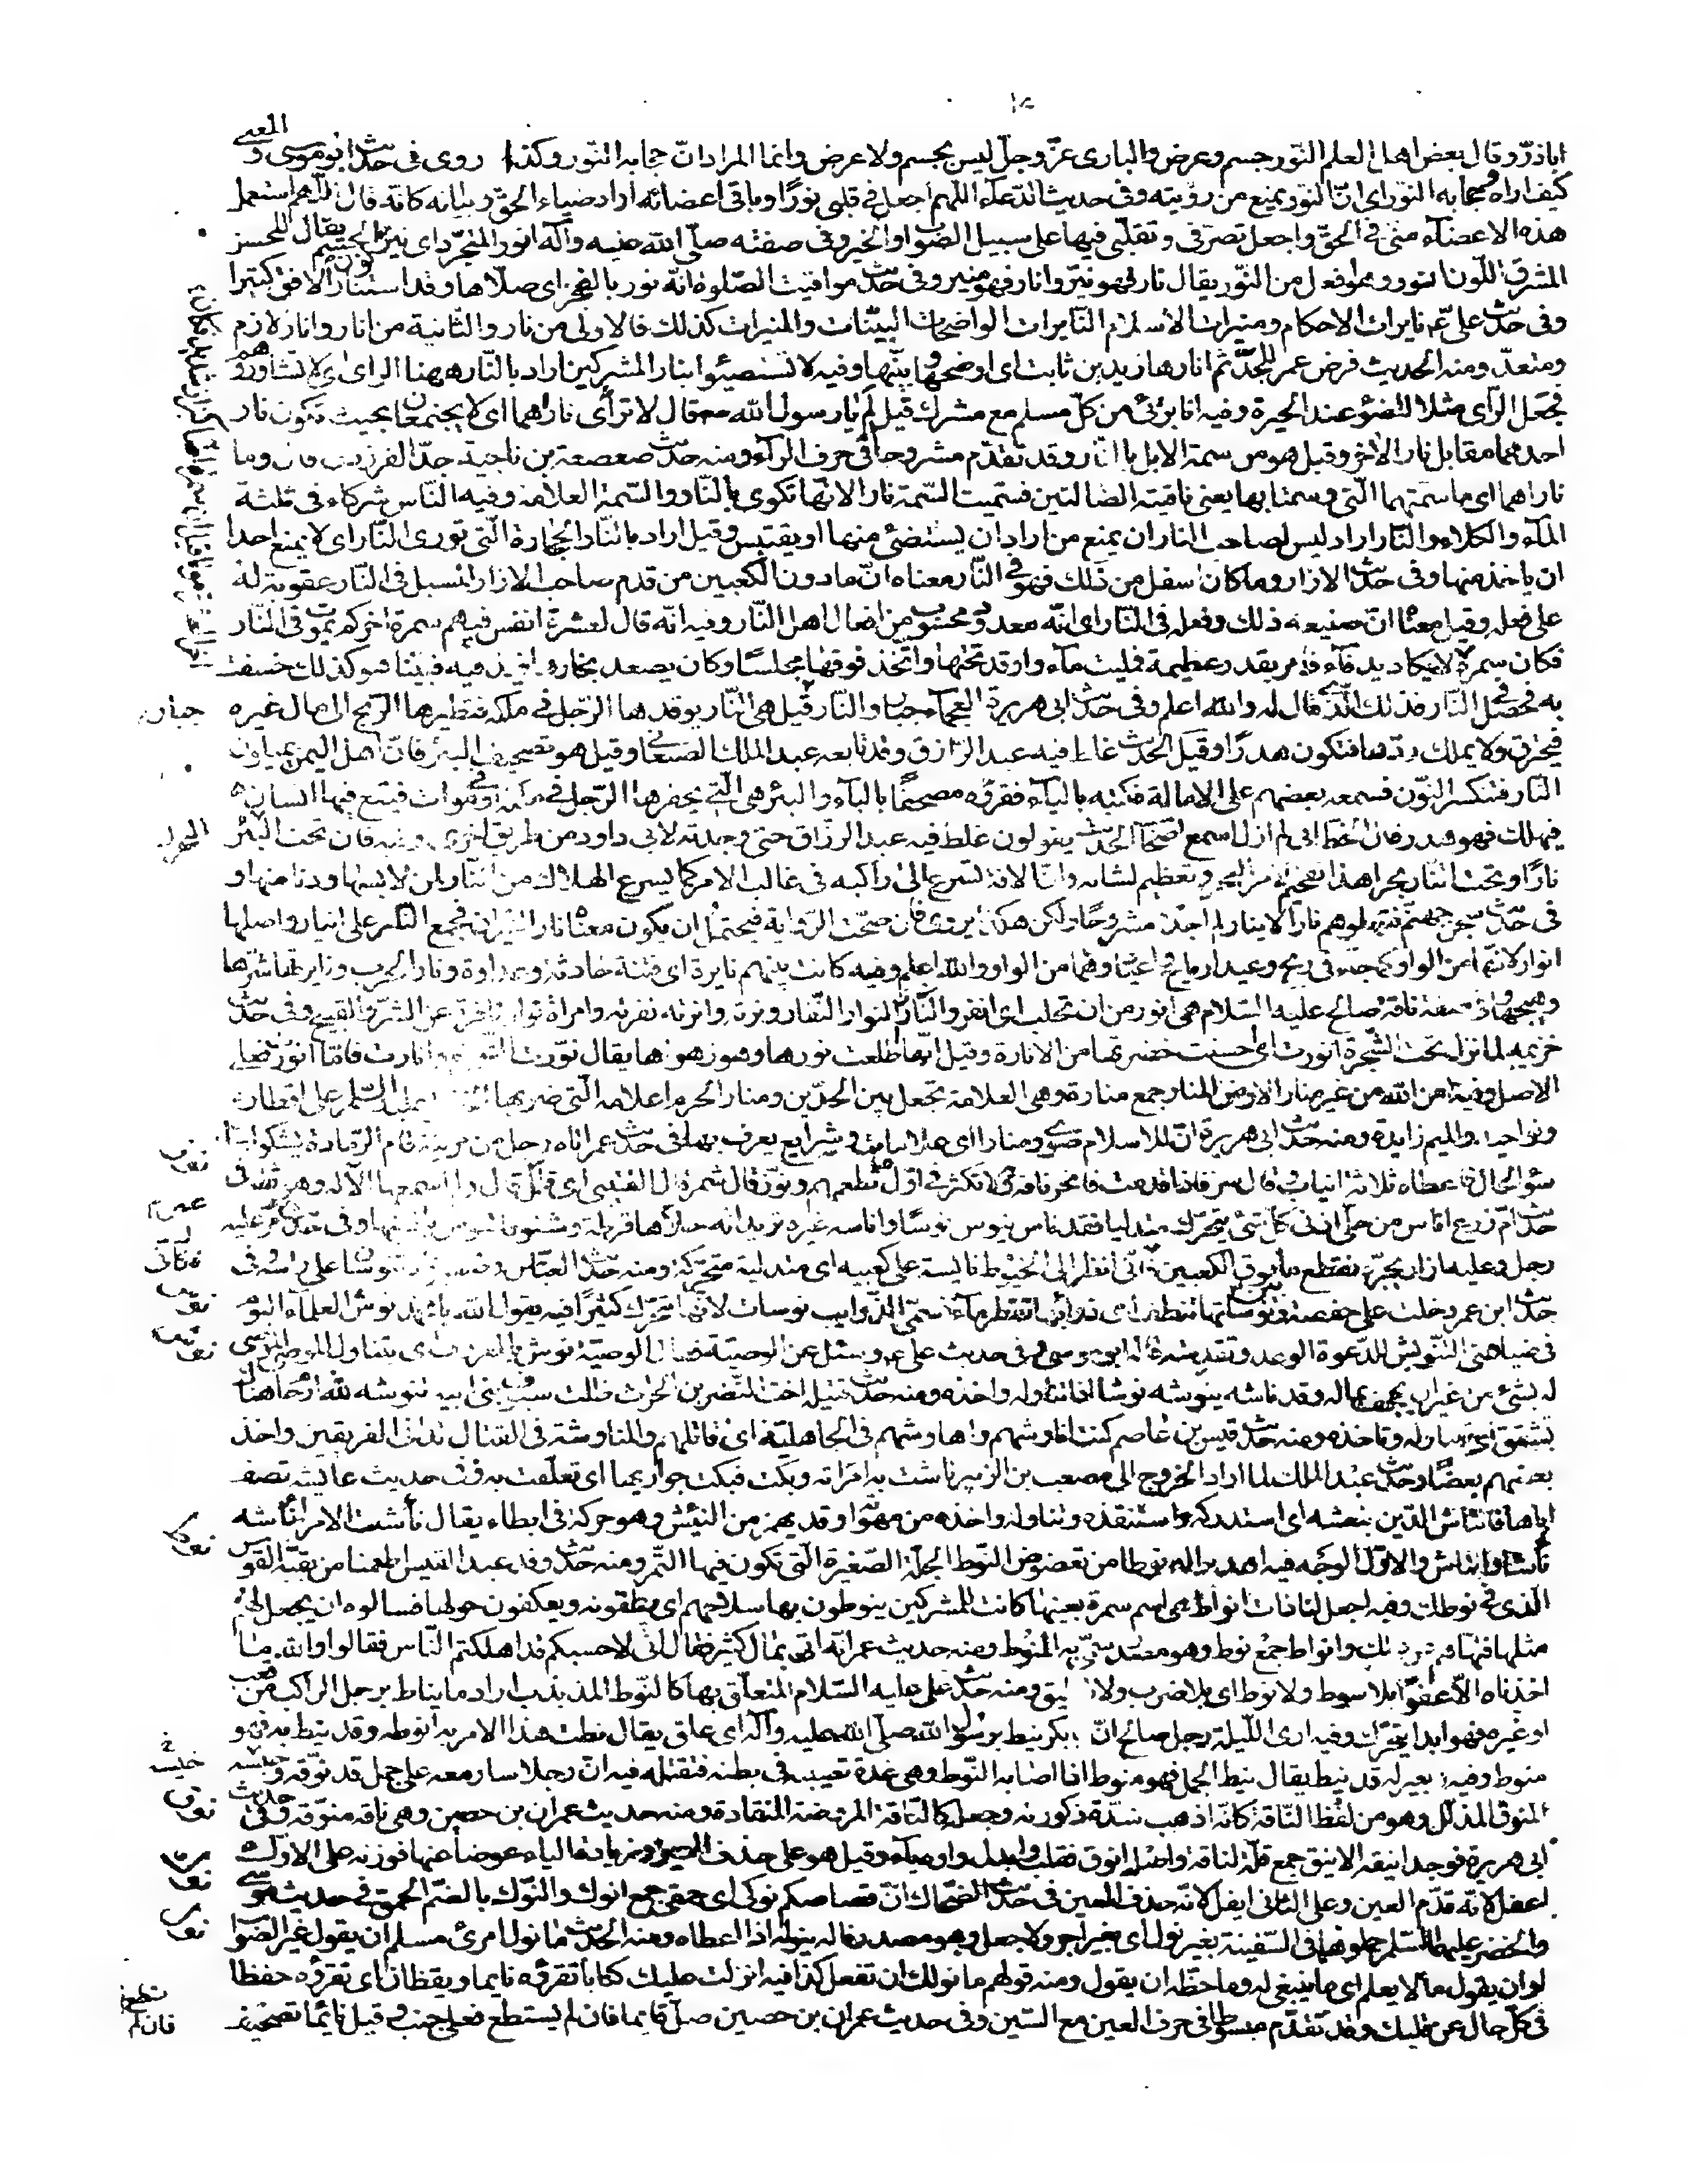 اباذرّ وقال بعض اهل العلم النّور جسم وعرض والباری عزّ وجلّ ليس بجسم ولا عرض وانما المراد انّ حجابه النّور وكذا روی فی حدیث ابو موسی والمعنی
كيف اراه وحجابه النّور ای انّ النّور يمنع من رؤيته وفی حديث الدّعاء اللّهم اجعل فی قلبی نورًا وباقی اعضائه اراد ضياء الحقّ وبيانه كانّه قال اللّهم استعمل
هذه الاعضاء منّی فی الحقّ واجعل تصرّفی وتقلّبی فيها علی سبيل الصّواب والخير وفی صفته صلّی الله عليه وآله انور المتجرّد ای نيّر لون الجسم يقال للحسن
المشرق اللّون انور وهو افعل من النّور يقال نار فهو نيّر وانار فهو منير وفی حدیث مواقيت الصّلوة انّه نور بالفجر ای صلّاها وقد استنار الافق كثيرا
وفی حدیث علیّ ع نايرات الاحكام ومنيرات الاسلام النّايرات الواضحات البيّنات والمنيرات كذلك فالاولی من نار والثّانية من انار وانار لازم
ومتعدّ ومنه الحديث فرض عمر للجدّ ثم انارها زيد بن ثابت ای اوضحها وبيّنها وفيه لا تستضيئوا بنار المشركين اراد بالنّار ههنا الرای ای لا تشاوروهم
فجعل الرّأی مثلا للضّوء عند الحيرة وفيه انا برئ من كلّ مسلم مع مشرك قيل لم يا رسول الله قال لا ترأی ناراهما ای لا يجتمعان بحيث تكون نار
احدهما مقابل نار الاخر وقيل هو من سمة الابل بالنّار وقد تقدّم مشروحا فی حرف الرّآء ومنه حدیث صعصعة بن ناجية جدّ الفرزدق قال وما
ناراهما ای ما سمتهما الّتی وسمتا بها يعنی ناقتيه الضالتين فسمّيت السّمة نارا لانّها تكوی بالنّار والسّمة العلامة وفيه النّاس شركاء فی ثلثة
المآء والكلاء والنّار اراد ليس لصاحب النار ان يمنع من اراد ان يستضئ منها او يقتبس وقيل اراد بالنّار الحجارة الّتی توری النّار ای لا يمنع احدا
ان ياخذ منها وفی حدیث الازار وما كان اسفل من ذلك فهو فی النّار معناه انّ ما دون الكعبين من قدم صاحب الازار المسبل فی النّار عقوبة له
علی فعله وقيل معناه انّ صنيعه ذلك وفعله فی النّار ای انّه معدود محسوب من افعال اهل النّار وفيه انّه قال لعشرة انفس فيهم سمرة اخركم يموت فی النّار
فكان سمرة لا يكاد يدفأ فامر بقدر عظيمة فملیت مآء واوقد تحتها واتّخذ فوقها مجلسًا وكان يصعد بخارها فيدفيه فبينا هو كذلك خسفت
به فحصل فی النّار فذلك الّذی قال له والله اعلم وفی حدیث ابی هريرة العجمآء جبار والنّار قيل هی النّار يوقدها الرّجل فی ملكه فتطيرها الرّيح الی مال غيره
فيحترق ولا يملك ردّها فتكون هدرًا وقيل الحدیث غلط فيه عبد الرزاق وقد تابعه عبد الملك الصّنعانی وقيل هو تصحيف البئر فانّ اهل اليمن يميلون
النّار فتنكسر النّون فسمعه بعضهم علی الامالة فكتبه بالياء فقرؤه مصحّفًا بالباء والبئر هی الّتی يحفرها الرّجل فی ملكه او فی موات فيقع فيها انسان
فيهلك فهو هدر قال الخطابی لم ازل اسمع اصحاب الحدیث يقولون غلط فيه عبد الرزّاق حتّی وجدته لابی داود من طريق اخری وفيه فان تحت البحر
نارًا وتحت النّار بحرا هذا تفخيم لامر البحر وتعظيم لشانه وانّ الافة تسرع الی راكبه فی غالب الامر كما يسرع الهلاك من النّار لمن لابسها ودنا منها و
فی حدیث سجن جهنّم فتعلوهم نار الانيار لم اجده مشروحًا ولكن هكذا يروی فان صحّت الرّواية فيحتمل ان يكون معناه نار النّيران فجمع النّار علی انيار واصلها
انوار لانّها من الواو كما جاء فی ريح وعيد ارياح واعياد وهما من الواو والله اعلم وفيه كانت بينهم نايرة ای فتنة حادثة وعداوة ونار الحرب ونايرتها شرّها
وهيجها وفی صفة ناقة صالح عليه السّلام هی انور من ان تحلب ای انفر والنّوار النّفار ونرته وانرته نفرته وامراة نوار نافرة عن الشّرّ والقبيح وفی حدیث
خزيمه لما نزل تحت الشّجرة انورت ای حسنت خضرتها من الانارة وقيل انّها اطلعت نورها وهو زهرها يقال نوّرت الشّجرة وانارت فامّا انورت فعلی
الاصل وفيه لعن الله من غير منار الارض المنار جمع منارة وهی العلامة تجعل بين الحدّين ومنار الحرم اعلامه الّتی ضربها الخليل عليه السّلم علی اقطاره
ونواحيه والميم زايدة ومنه حدیث ابی هريرة انّ للاسلام صوی ومنارا ای علامات وشرايع يعرف بها فی حدیث عمر اتاه رجل من مزينة عام الرّمادة يشكو اليه
سؤ الحال فاعطاه ثلاثة انياب وقال سر فاذا قدمت فانحر ناقة ولا تكثر فی اوّل ما تطعمهم ونوّز قال شمر قال القعنبی ای قلّل قال ولم اسمعها الّا له وهو ثقة فی
حدیث امّ زرع اناس من حلی اذنی كلّ شئ يتحرّك متدليا فقد ناس ينوس نوسًا واناسه غيره تريد انه حلّاها قرطة وشنوفا تنوس باذنيها وفی حدیث عمر مرّ عليه
رجل وعليه ازار يجرّه فقطع ما فوق الكعبين فكانّی انظر الی الخيوط نايسة علی كعبيه ای متدلية متحرّكة ومنه حدیث العبّاس وضفيرتاه تنوسان علی راسه فی
حدیث ابن عمر دخلت علی حفصة ونوساتها تنطف ای ذوائبها تقطر مآء فسمّی الذّوايب نوسات لانّها تتحرّك كثيرًا فيه يقول الله يا محمد نوّش العلماء اليوم
فی ضيافتی التّنويش للدّعوة الوعد وتقدمته قاله ابو موسی وفی حديث علی ع وسئل عن الوصيّة فقال الوصيّة نوش بالمعروف ای يتناول الموصی الموصی
له بشئ من غير ان يجحف بماله وقد ناشه ينوشه نوشا اذا تناوله واخذه ومنه حدیث قتيلة اخت النّضر بن الحارث ظلّت سيوف بنی ابيه تنوشه لله ارحام هناك
تشقّق ای تتناوله وتاخذه ومنه حدیث قيس بن عاصم كنت اناوشهم واهاوشهم فی الجاهليّة ای اقاتلهم والمناوشة فی القتال تدانی الفريقين واخذ
بعضهم بعضًا وحدیث عبد الملك لما اراد الخروج الی مصعب بن الزبير ناشت به امراته وبكت فبكت جواريها ای تعلّقت به وفی حديث عايشه تصف
اباها فانتاش الدّين بنعشه ای استدركه واستنقذه وتناوله واخذه من مهواته وقد يهمز من النئيش وهو حركة فی ابطاء يقال نأشت الامر انأشه
نأشا وانتاش والاوّل الوجه فيه اهدوا له نوطا من تعضوض النّوط الجلّة الصّغيرة الّتی تكون فيها التّمر ومنه حدیث وفد عبد القيس اطعمنا من بقيّة القوس
الّذی فی نوطك وفيه اجعل لنا ذات انواط هی اسم سمرة بعينها كانت للمشركين ينوطون بها سلاحهم ای يعلّقونه ويعكفون حولها فسالوه ان يجعل لهم
مثلها فنهاهم عن ذلك وانواط جمع نوط وهو مصدر سمّی به المنوط ومنه حديث عمر انّه اتی بمال كثير فقال انّی لاحسبكم قد اهلكتم النّاس فقالوا والله ما
اخذناه الّا عفوًا بلا سوط ولا نوط ای بلا ضرب ولا تعليق ومنه حدیث علی عليه السّلام المتعلّق بها كالنّوط المذبذب اراد ما يناط برحل الراكب من قعب
او غيره فهو ابدا يتحرّك وفيه اری اللّيلة رجل صالح انّ ابا بكر نيط برسول الله صلّی الله عليه وآله ای علق يقال نطت هذا الامر به انوطه وقد نيط به فهو
منوط وفيه بعير له قد نيط يقال نيط الجمل فهو منوط اذا اصابه النّوط وهی غدة تصيبه فی بطنه فتقتله فيه انّ رجلا سار معه علی جمل قد نوّقه وخيّسه
المنوّق المذلّل وهو من لفظ النّاقة كانّه اذهب شدّة ذكورته وجعله كالنّاقة المروّضة المنقادة ومنه حديث عمران بن حصين وهی ناقة منوّقة وفی حديث
ابی هريرة فوجد اينقه الاينق جمع قلّة لناقة واصله انوق فقلب وابدل واوه ياء وقيل هو علی حذف العين وزيادة الياء عوضا عنها فوزنه علی الاوّل
اعفل لانّه قدّم العين وعلی الثانی ايفل لانّه حذف العين فی حدیث الضّحاك انّ قصاصكم نوكی ای حمقی جمع انوك والنّوك بالضّم الحمق فی حديث موسی
والخضر عليهما السّلم حملوهما فی السّفينة بغير نول ای بغير اجر ولا جعل وهو مصدر ناله ينوله اذا اعطاه ومنه الحدیث ما نول امرئ مسلم ان يقول غير الصّواب
او ان يقول ما لا يعلم ای ما ينبغی له وما حظّه ان يقول ومنه قولهم ما نولك ان تفعل كذا فيه انزلت عليك كتابا تقرؤه نايما ويقظان ای تقرؤه حفظا
فی كلّ حال عن قلبك وقد تقدّم مبسوطا فی حرف العين مع السّين وفی حديث عمران بن حصين صلّ قائما فان لم يستطع فعلی جنب وقيل نائما تصحيف
جبار
خيّسه